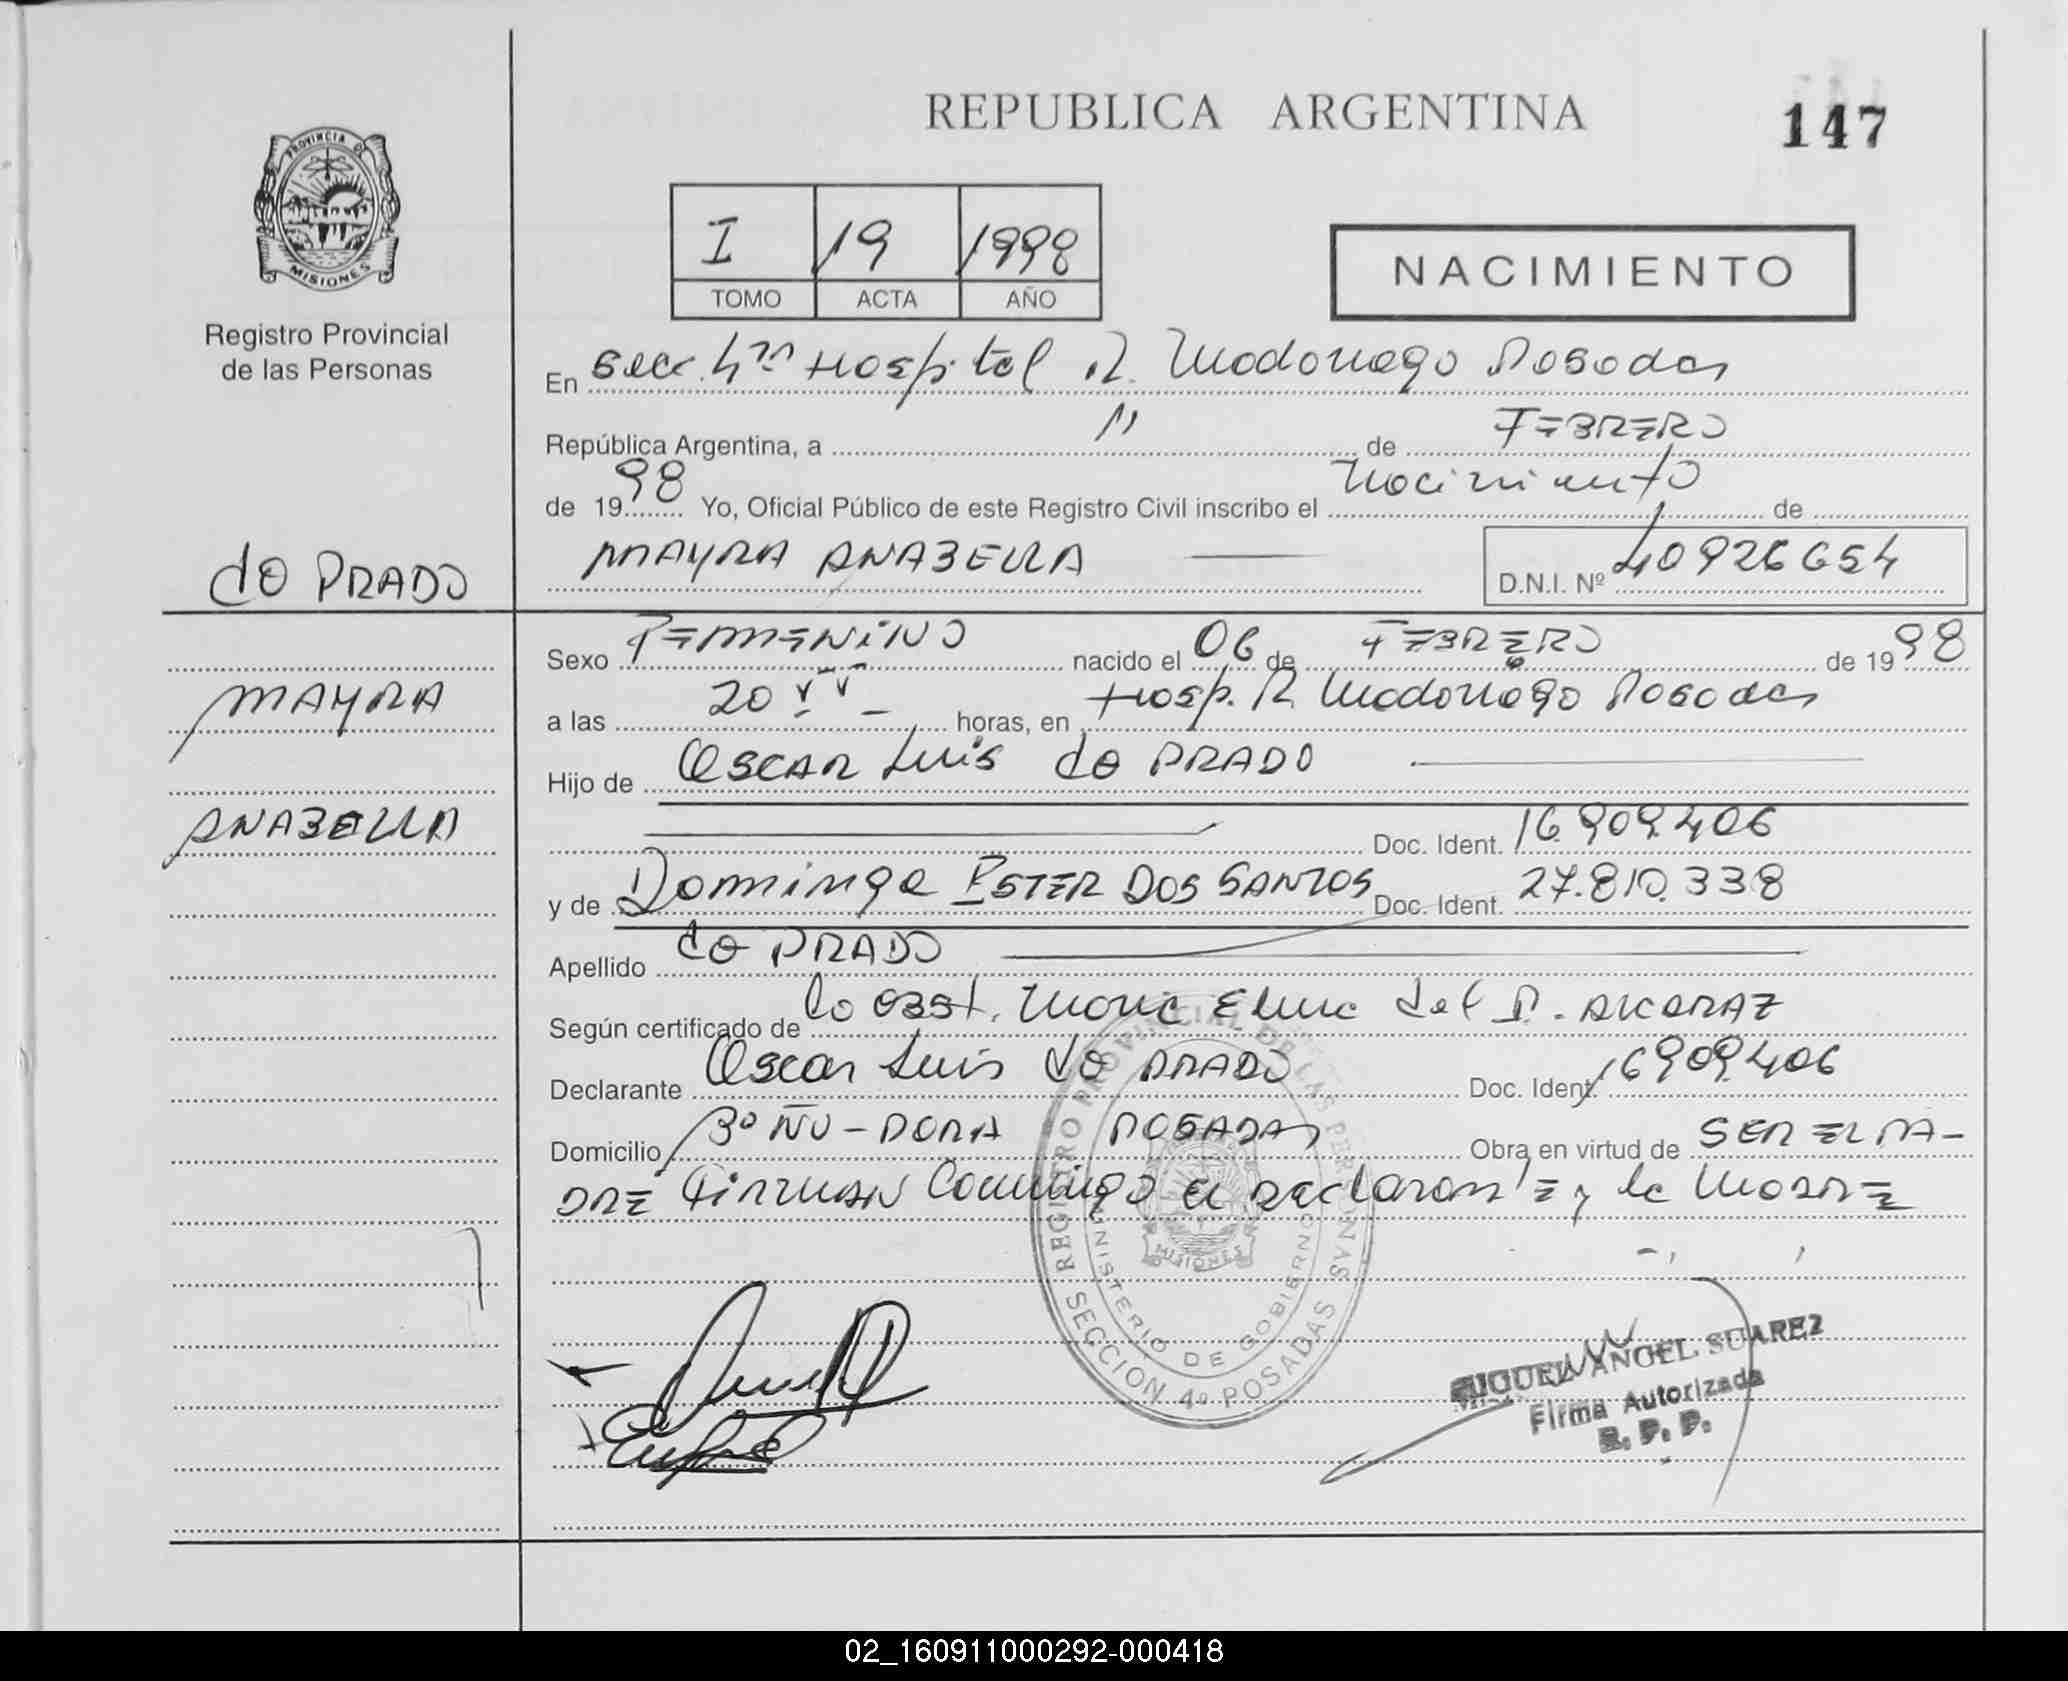 REPUBLICA ARGENTINA
147
PROVINCIA DE
MISIONES
Registro Provincial
de las Personas
I 19 1998
TOMO ACTA AÑO
NACIMIENTO
En Secc. 4ta Hospital R. Madariaga Posadas
República Argentina, a 11 de FEBRERO
de 1998 Yo, Oficial Público de este Registro Civil inscribo el Nacimiento de
MAYRA ANABELLA
D.N.I. Nº 40926654
do PRADO
MAYRA
ANABELLA
Sexo FEMENINO nacido el 06 de FEBRERO de 1998
a las 20 horas, en Hosp. R. Madariaga Posadas
Hijo de OSCAR Luis do PRADO
Doc. Ident. 16.909.406
y de Dominga ESTER DOS SANTOS Doc. Ident. 27.810.338
Apellido do PRADO
Según certificado de la obst. Maria Elena del P. ALCARAZ
Declarante Oscar Luis do PRADO Doc. Ident. 16909.406
Domicilio Bº ÑU-PORA POSADAS Obra en virtud de SER EL PA-
DRE FIRMAN Conmigo el declarante y la Madre
REGISTRO PROVINCIAL DE LAS PERSONAS
MINISTERIO DE GOBIERNO
MISIONES
SECCION 4º POSADAS
MIGUEL ANGEL SUAREZ
Firma Autorizada
R. P. P.
02_160911000292-000418